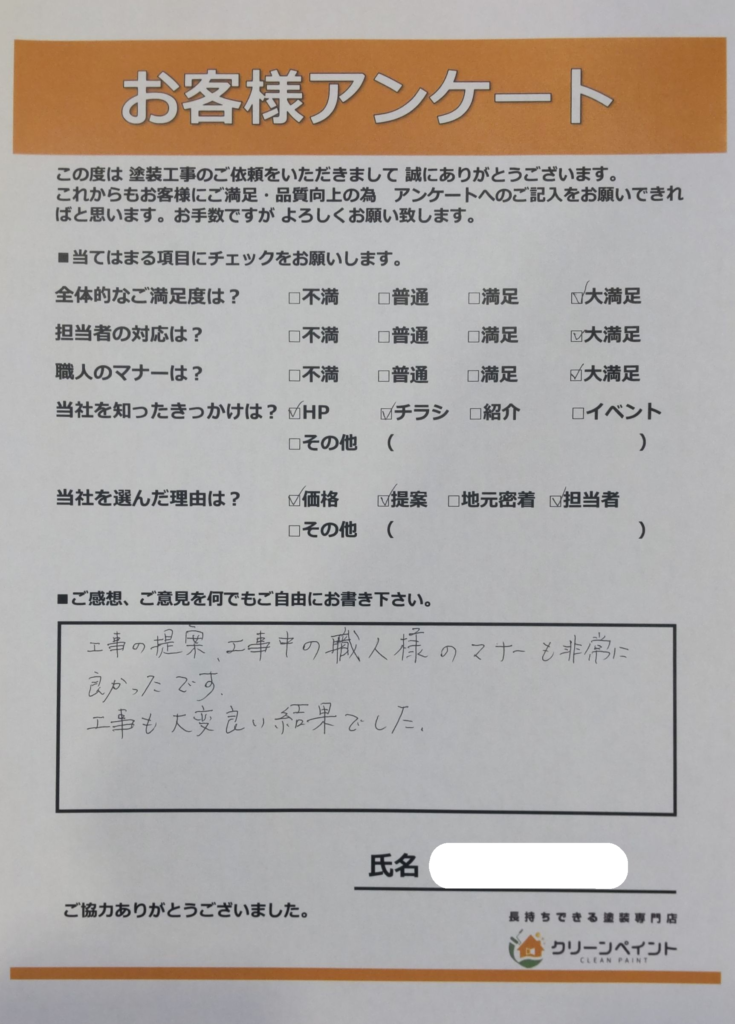 お客様アンケート
この度は 塗装工事のご依頼をいただきまして 誠にありがとうございます。
これからもお客様にご満足・品質向上の為　アンケートへのご記入をお願いできれ
ばと思います。お手数ですが よろしくお願い致します。
■当てはまる項目にチェックをお願いします。
全体的なご満足度は？ □不満 □普通 □満足 ☑大満足
担当者の対応は？ □不満 □普通 □満足 ☑大満足
職人のマナーは？ □不満 □普通 □満足 ☑大満足
当社を知ったきっかけは？ ☑HP ☑チラシ □紹介 □イベント
□その他 （ ）
当社を選んだ理由は？ ☑価格 ☑提案 □地元密着 ☑担当者
□その他 （ ）
■ご感想、ご意見を何でもご自由にお書き下さい。
工事の提案、工事中の職人様のマナーも非常に
良かったです.
工事も大変良い結果でした.
氏名
ご協力ありがとうございました。
長持ちできる塗装専門店
クリーンペイント
CLEAN PAINT